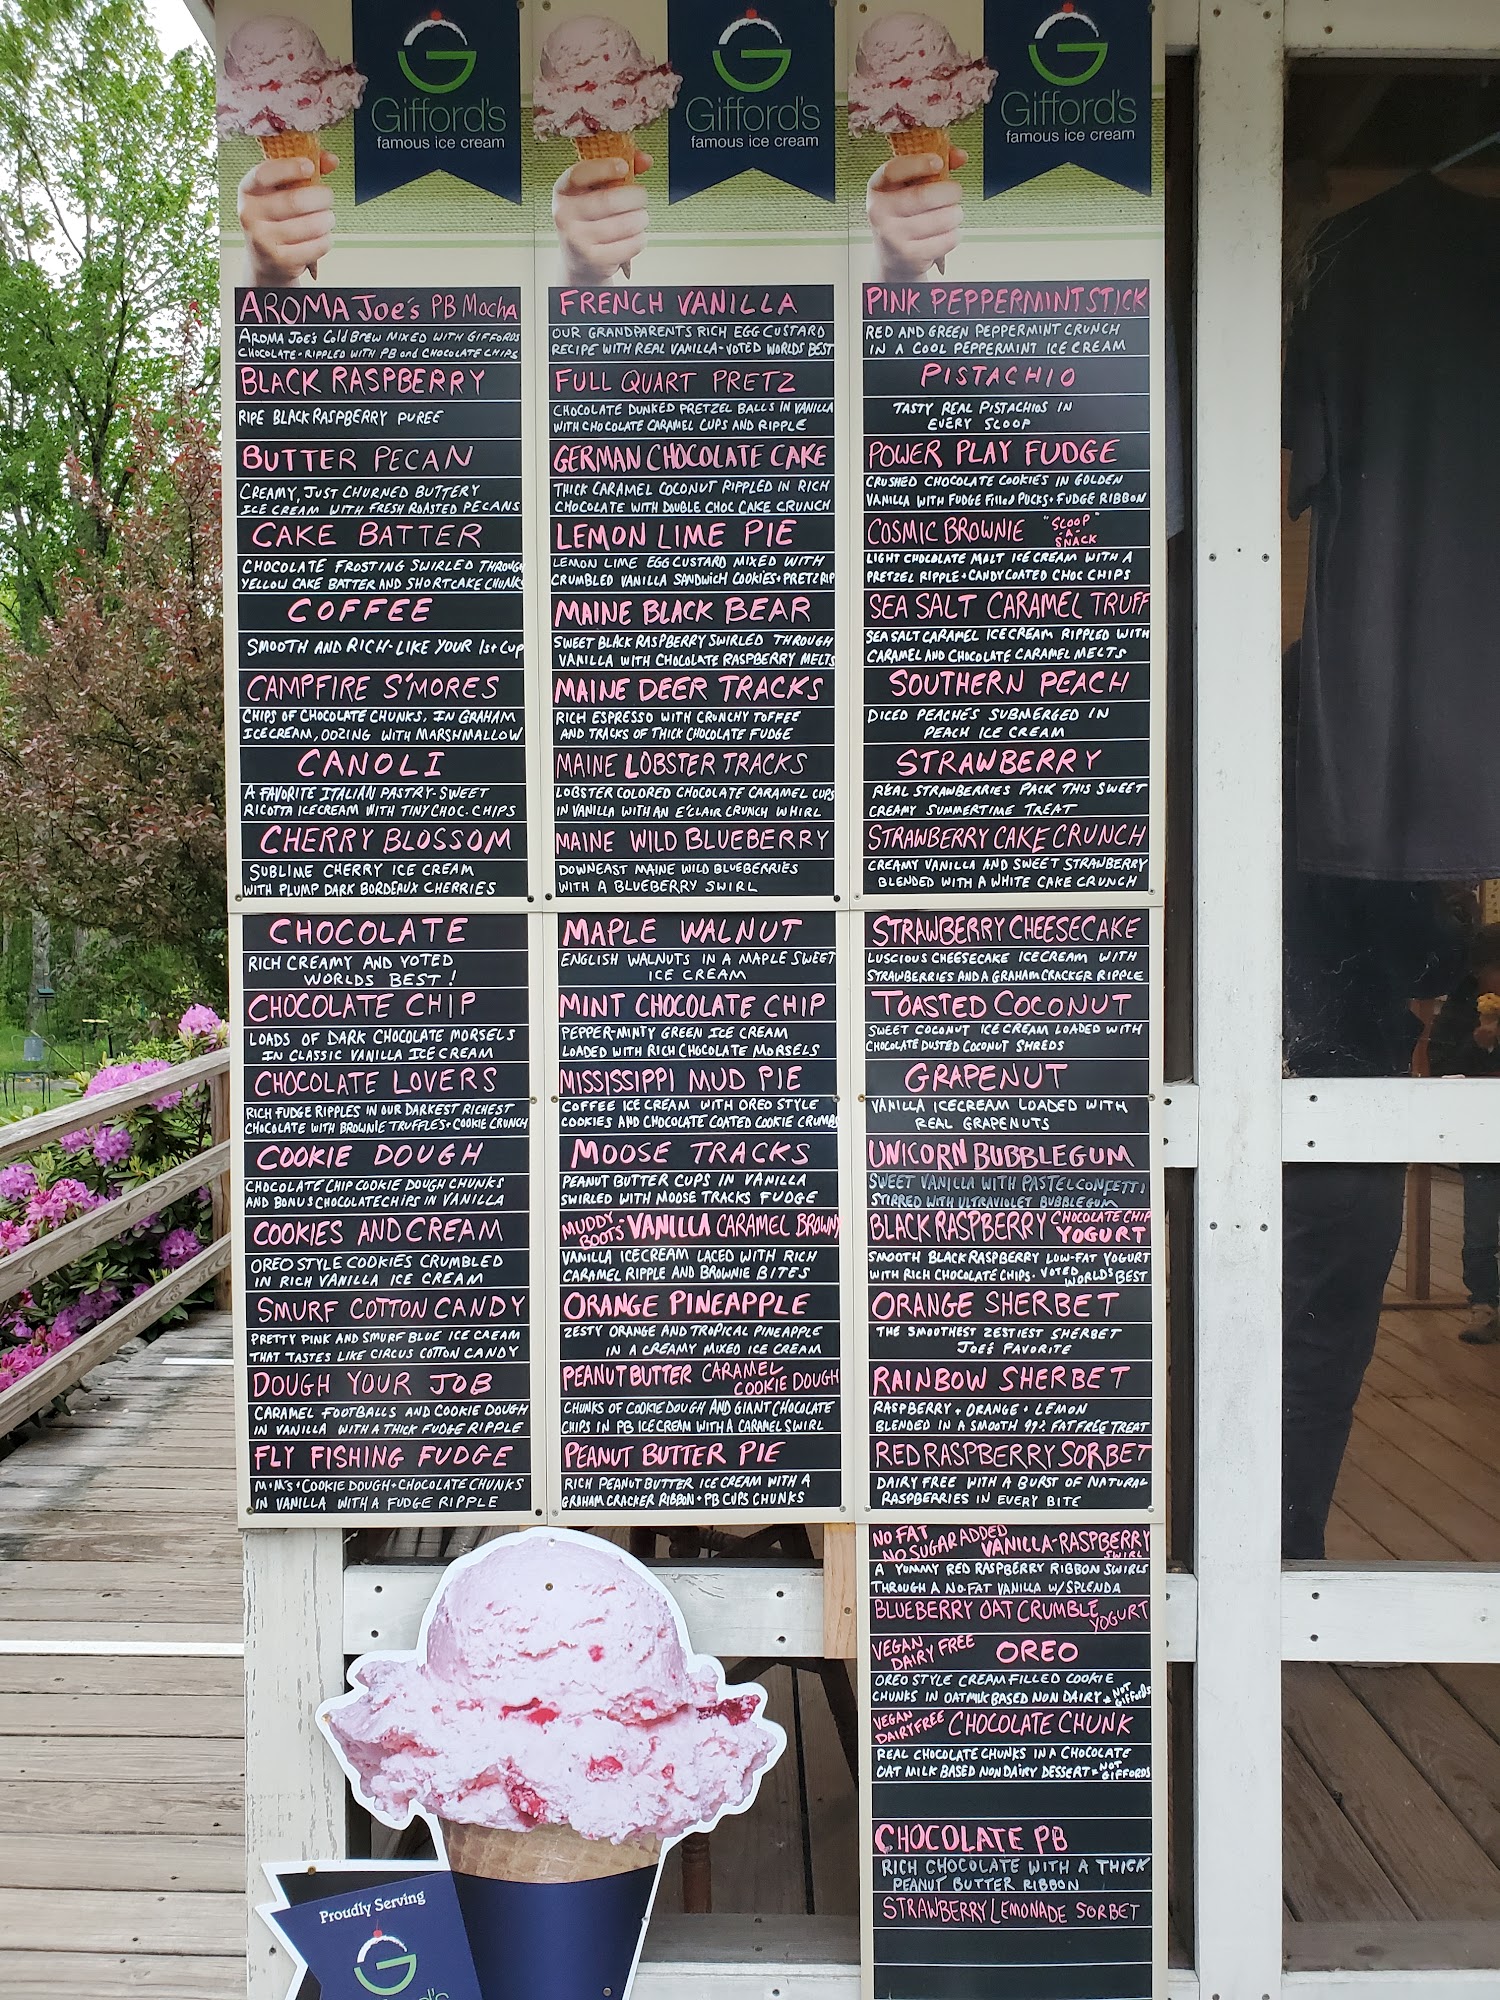 Gifford's
famous ice cream
AROMA Joe's PB Mocha
AROMA JOE'S COLD BREW MIXED WITH GIFFORDS
CHOCOLATE - RIPPLED WITH PB and CHOCOLATE CHIPS
BLACK RASPBERRY
RIPE BLACK RASPBERRY PUREE
BUTTER PECAN
CREAMY, JUST CHURNED BUTTERY
ICE CREAM WITH FRESH ROASTED PECANS
CAKE BATTER
CHOCOLATE FROSTING SWIRLED THROUGH
YELLOW CAKE BATTER AND SHORTCAKE CHUNKS
COFFEE
SMOOTH AND RICH-LIKE YOUR 1st CUP
CAMPFIRE S'MORES
CHIPS OF CHOCOLATE CHUNKS, IN GRAHAM
ICECREAM, OOZING WITH MARSHMALLOW
CANOLI
A FAVORITE ITALIAN PASTRY-SWEET
RICOTTA ICECREAM WITH TINY CHOC. CHIPS
CHERRY BLOSSOM
SUBLIME CHERRY ICE CREAM
WITH PLUMP DARK BORDEAUX CHERRIES
CHOCOLATE
RICH CREAMY AND VOTED
WORLDS BEST!
CHOCOLATE CHIP
LOADS OF DARK CHOCOLATE MORSELS
IN CLASSIC VANILLA ICE CREAM
CHOCOLATE LOVERS
RICH FUDGE RIPPLES IN OUR DARKEST RICHEST
CHOCOLATE WITH BROWNIE TRUFFLES + COOKIE CRUNCH
COOKIE DOUGH
CHOCOLATE CHIP COOKIE DOUGH CHUNKS
AND BONUS CHOCOLATE CHIPS IN VANILLA
COOKIES AND CREAM
OREO STYLE COOKIES CRUMBLED
IN RICH VANILLA ICE CREAM
SMURF COTTON CANDY
PRETTY PINK AND SMURF BLUE ICE CREAM
THAT TASTES LIKE CIRCUS COTTON CANDY
DOUGH YOUR JOB
CARAMEL FOOTBALLS AND COOKIE DOUGH
IN VANILLA WITH A THICK FUDGE RIPPLE
FLY FISHING FUDGE
M+M'S + COOKIE DOUGH + CHOCOLATE CHUNKS
IN VANILLA WITH A FUDGE RIPPLE
Gifford's
famous ice cream
FRENCH VANILLA
OUR GRANDPARENTS RICH EGG CUSTARD
RECIPE WITH REAL VANILLA - VOTED WORLDS BEST
FULL QUART PRETZ
CHOCOLATE DUNKED PRETZEL BALLS IN VANILLA
WITH CHOCOLATE CARAMEL CUPS AND RIPPLE
GERMAN CHOCOLATE CAKE
THICK CARAMEL COCONUT RIPPLED IN RICH
CHOCOLATE WITH DOUBLE CHOC CAKE CRUNCH
LEMON LIME PIE
LEMON LIME EGG CUSTARD MIXED WITH
CRUMBLED VANILLA SANDWICH COOKIES + PRETZ RIP
MAINE BLACK BEAR
SWEET BLACK RASPBERRY SWIRLED THROUGH
VANILLA WITH CHOCOLATE RASPBERRY MELTS
MAINE DEER TRACKS
RICH ESPRESSO WITH CRUNCHY TOFFEE
AND TRACKS OF THICK CHOCOLATE FUDGE
MAINE LOBSTER TRACKS
LOBSTER COLORED CHOCOLATE CARAMEL CUPS
IN VANILLA WITH AN E'CLAIR CRUNCH WHIRL
MAINE WILD BLUEBERRY
DOWNEAST MAINE WILD BLUEBERRIES
WITH A BLUEBERRY SWIRL
MAPLE WALNUT
ENGLISH WALNUTS IN A MAPLE SWEET
ICE CREAM
MINT CHOCOLATE CHIP
PEPPER-MINTY GREEN ICE CREAM
LOADED WITH RICH CHOCOLATE MORSELS
MISSISSIPPI MUD PIE
COFFEE ICE CREAM WITH OREO STYLE
COOKIES AND CHOCOLATE COATED COOKIE CRUMBS
MOOSE TRACKS
PEANUT BUTTER CUPS IN VANILLA
SWIRLED WITH MOOSE TRACKS FUDGE
MUDDY BOOTS: VANILLA CARAMEL BROWNY
VANILLA ICECREAM LACED WITH RICH
CARAMEL RIPPLE AND BROWNIE BITES
ORANGE PINEAPPLE
ZESTY ORANGE AND TROPICAL PINEAPPLE
IN A CREAMY MIXED ICE CREAM
PEANUT BUTTER CARAMEL
COOKIE DOUGH
CHUNKS OF COOKIE DOUGH AND GIANT CHOCOLATE
CHIPS IN PB ICECREAM WITH A CARAMEL SWIRL
PEANUT BUTTER PIE
RICH PEANUT BUTTER ICE CREAM WITH A
GRAHAM CRACKER RIBBON + PB CUPS CHUNKS
Gifford's
famous ice cream
PINK PEPPERMINT STICK
RED AND GREEN PEPPERMINT CRUNCH
IN A COOL PEPPERMINT ICE CREAM
PISTACHIO
TASTY REAL PISTACHIOS IN
EVERY SCOOP
POWER PLAY FUDGE
CRUSHED CHOCOLATE COOKIES IN GOLDEN
VANILLA WITH FUDGE Filled PUCKS + FUDGE RIBBON
COSMIC BROWNIE "SCOOP A SNACK"
LIGHT CHOCOLATE MALT ICE CREAM WITH A
PRETZEL RIPPLE + CANDY COATED CHOC CHIPS
SEA SALT CARAMEL TRUFF
SEA SALT CARAMEL ICECREAM RIPPLED WITH
CARAMEL AND CHOCOLATE CARAMEL MELTS
SOUTHERN PEACH
DICED PEACHES SUBMERGED IN
PEACH ICE CREAM
STRAWBERRY
REAL STRAWBERRIES PACK THIS SWEET
CREAMY SUMMERTIME TREAT
STRAWBERRY CAKE CRUNCH
CREAMY VANILLA AND SWEET STRAWBERRY
BLENDED WITH A WHITE CAKE CRUNCH
STRAWBERRY CHEESECAKE
LUSCIOUS CHEESECAKE ICECREAM WITH
STRAWBERRIES AND A GRAHAM CRACKER RIPPLE
TOASTED COCONUT
SWEET COCONUT ICE CREAM LOADED WITH
CHOCOLATE DUSTED COCONUT SHREDS
GRAPENUT
VANILLA ICECREAM LOADED WITH
REAL GRAPENUTS
UNICORN BUBBLEGUM
SWEET VANILLA WITH PASTEL CONFETTI
STIRRED WITH ULTRAVIOLET BUBBLEGUM
BLACK RASPBERRY CHOCOLATE CHIP
YOGURT
SMOOTH BLACK RASPBERRY LOW-FAT YOGURT
WITH RICH CHOCOLATE CHIPS. VOTED WORLD'S BEST
ORANGE SHERBET
THE SMOOTHEST ZESTIEST SHERBET
JOE'S FAVORITE
RAINBOW SHERBET
RASPBERRY + ORANGE + LEMON
BLENDED IN A SMOOTH 99% FAT FREE TREAT
RED RASPBERRY SORBET
DAIRY FREE WITH A BURST OF NATURAL
RASPBERRIES IN EVERY BITE
NO FAT
NO SUGAR ADDED VANILLA-RASPBERRY
SWIRL
A YUMMY RED RASPBERRY RIBBON SWIRLS
THROUGH A NO-FAT VANILLA W/ SPLENDA
BLUEBERRY OAT CRUMBLE YOGURT
VEGAN
DAIRY FREE OREO
OREO STYLE CREAM FILLED COOKIE
CHUNKS IN OATMILK BASED NON DAIRY * NOT GIFFORDS
VEGAN
DAIRY FREE CHOCOLATE CHUNK
REAL CHOCOLATE CHUNKS IN A CHOCOLATE
OAT MILK BASED NON DAIRY DESSERT * NOT GIFFORDS
CHOCOLATE PB
RICH CHOCOLATE WITH A THICK
PEANUT BUTTER RIBBON
STRAWBERRY LEMONADE SORBET
Proudly Serving